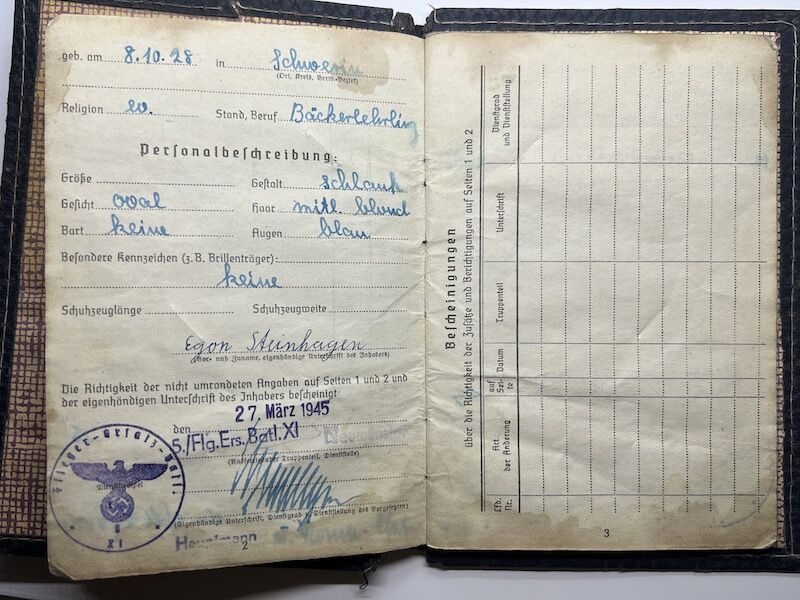 geb. am 8.10.28 in Schwerin
(Ort, Kreis, Verw.-Bezirk)
Religion ev. Stand, Beruf Bäckerlehrling
Personalbeschreibung:
Größe Gestalt schlank
Gesicht oval Haar mittl. blond
Bart keine Augen blau
Besondere Kennzeichen (z. B. Brillenträger):
keine
Schuhzeuglänge Schuhzeugweite
Egon Steinhagen
(Vor- und Zuname, eigenhändige Unterschrift des Inhabers)
Die Richtigkeit der nicht umrandeten Angaben auf Seiten 1 und 2 und
der eigenhändigen Unterschrift des Inhabers bescheinigt
27. März 1945
den
5./Flg.Ers.Batl.XI
(Ausfertigender Truppenteil, Dienststelle)
Flieger-Ersatz-Batl.
Dienststempel
XI
(Eigenhändige Unterschrift, Dienstgrad u. Dienststellung des Vorgesetzten)
Hauptmann
2
Bescheinigungen
über die Richtigkeit der Zusätze und Berichtigungen auf Seiten 1 und 2
Lfd. Nr.
Art der Änderung
auf Seite
Datum
Truppenteil
Unterschrift
Dienstgrad und Dienststellung
3